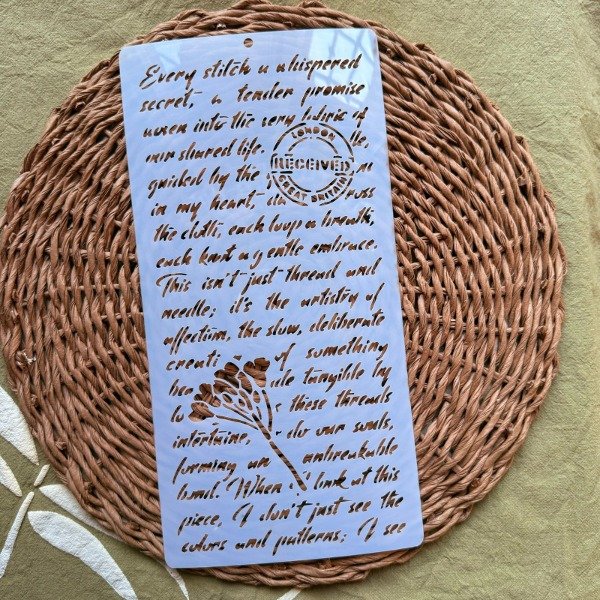 Every stitch a whispered
secret, a tender promise
woven into the very fabric of
our shared life.
guided by the
in my heart,
the cloth, each loop a breath,
each knot a gentle embrace.
This isn't just thread and
needle; it's the artistry of
affection, the slow, deliberate
creati of something
tangible by
these threads
intertwine, do our souls,
forming an unbreakable
bond. When I look at this
piece, I don't just see the
colors and patterns; I see
LONDON
RECEIVED
GREAT BRITAIN